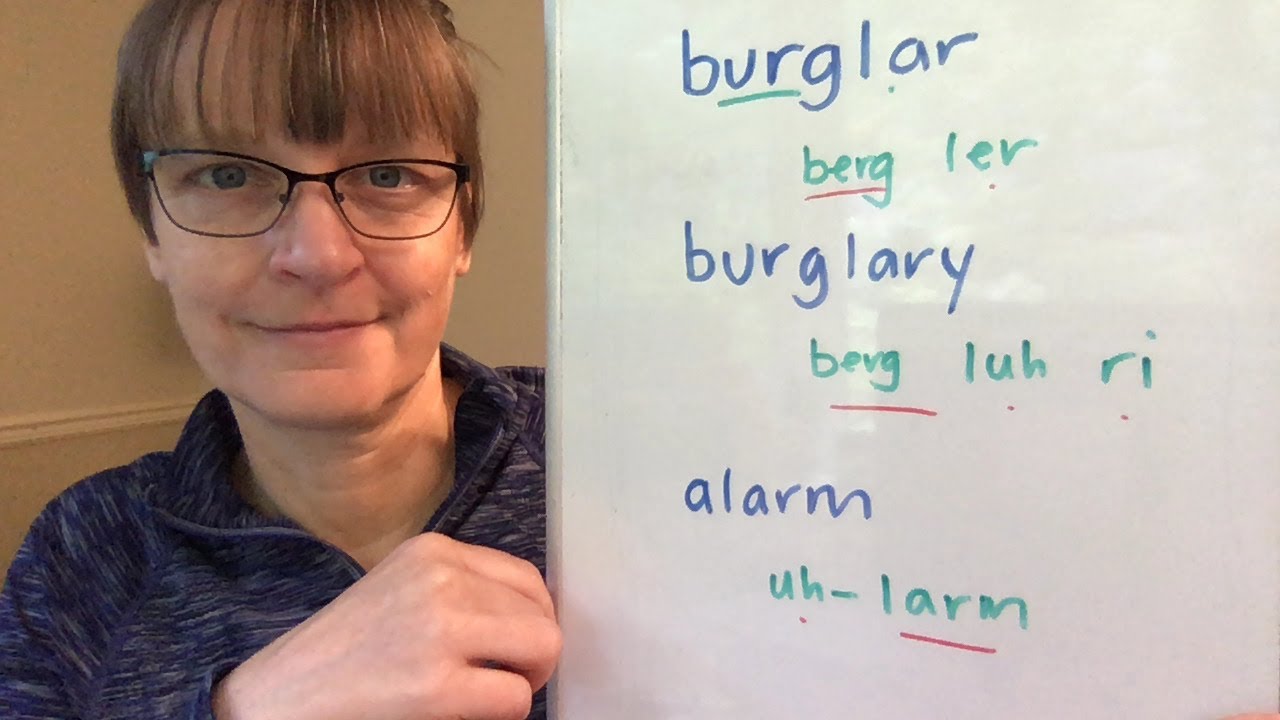 burglar
berg ler
burglary
berg luh ri
alarm
uh-larm